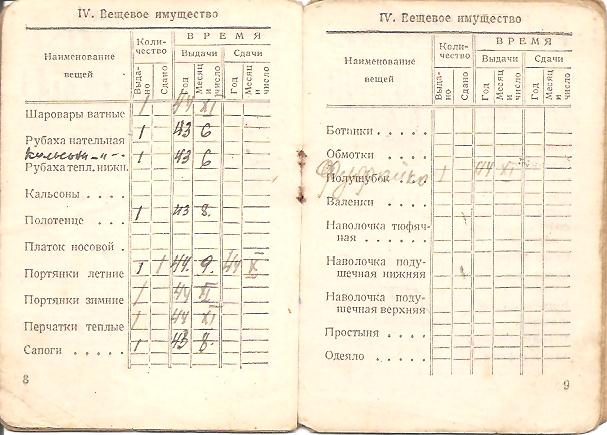 IV. Вещевое имущество
Наименование вещей
Коли-
чество
ВРЕМЯ
Выдачи
Сдачи
Выда-
но
Сдано
Год
Месяц
и
число
Год
Месяц
и
число
Шаровары ватные 1 44 XI
Рубаха нательная 1 43 6
кальсоны -"- 1 43 6
Рубаха тепл. нижн.
Кальсоны . . . .
Полотенце . . . 1 43 8.
Платок носовой .
Портянки летние 1 1 44. 9. 44 X
Портянки зимние 1 44 XI
Перчатки теплые 1 44 XI
Сапоги . . . . . 1 43 8.
8
IV. Вещевое имущество
Наименование
вещей
Коли-
чество
ВРЕМЯ
Выдачи
Сдачи
Выда-
но
Сдано
Год
Месяц
и
число
Год
Месяц
и
число
Ботинки . . . . .
Обмотки . . . .
Полушубок . . . 1 44 XI
Валенки . . . .
Наволочка тюфяч-
ная . . . . . .
Наволочка поду-
шечная нижняя
Наволочка поду-
шечная верхняя
Простыня . . . .
Одеяло . . . . .
9